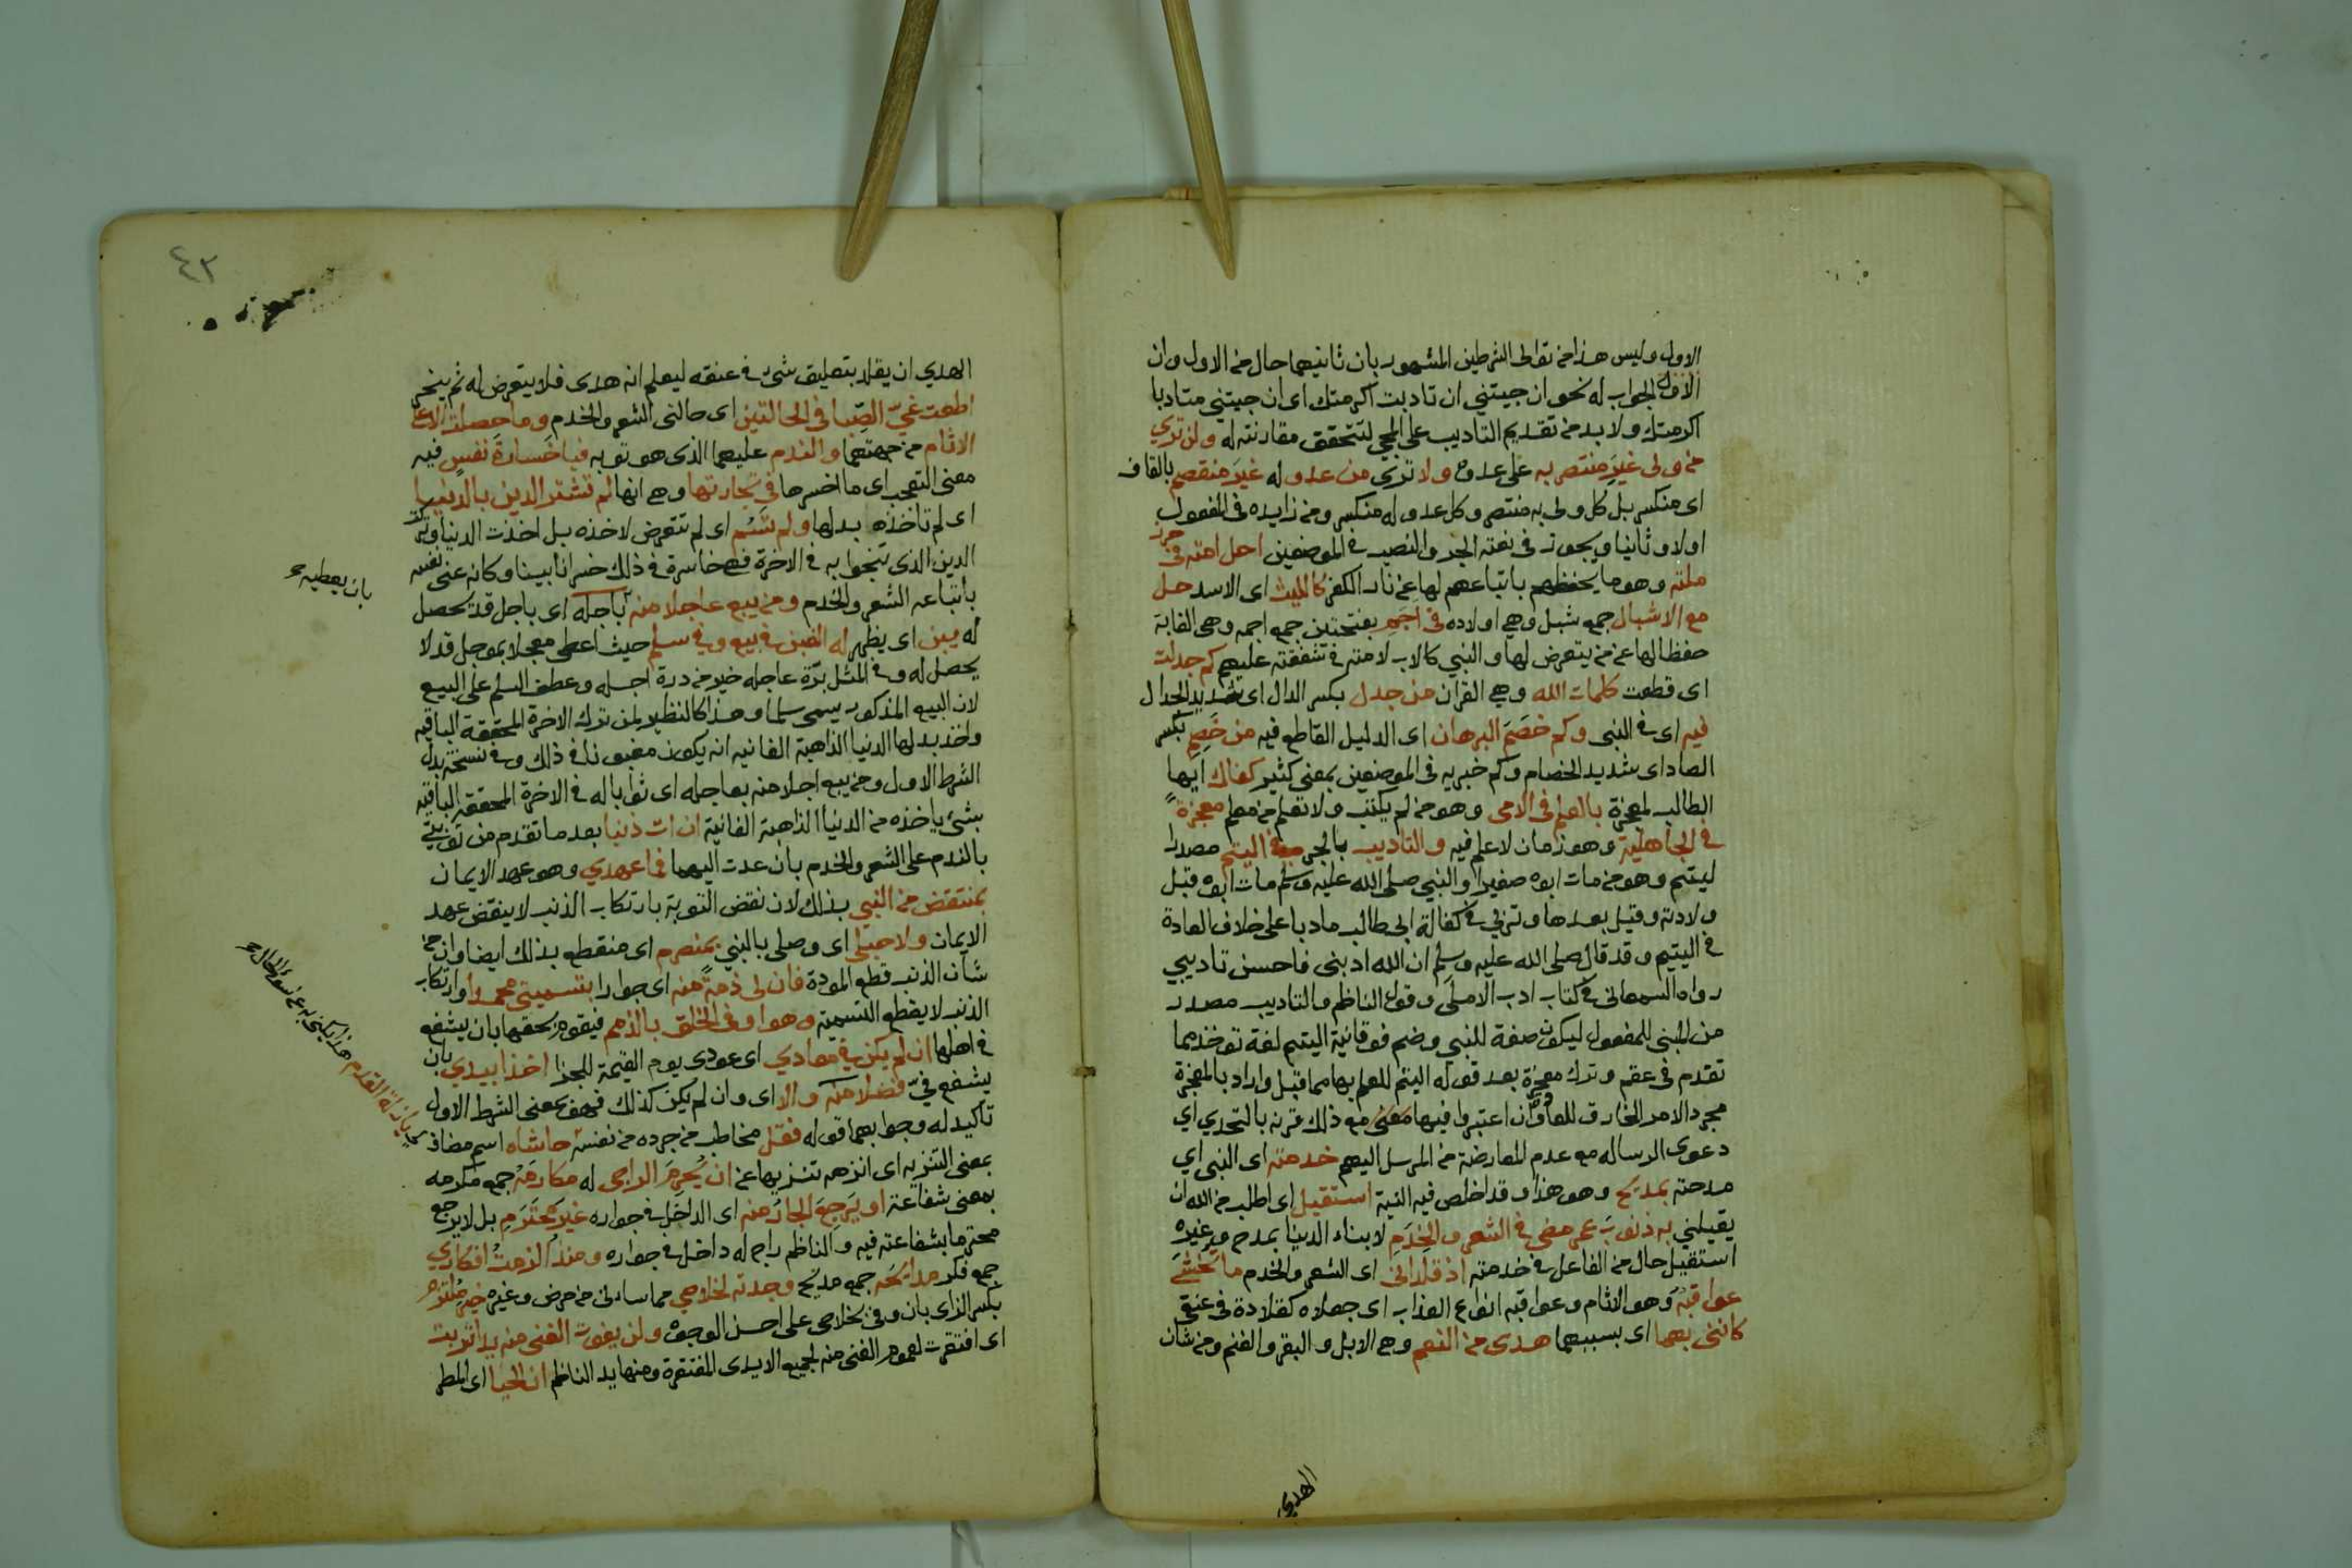 الاول وليس هذا من توالى الشرطين المشهور بان ثانيهما حال من الاول وان
الاول الجواب له نحو ان جيتني ان تادبت اكرمتك اى ان جيتني متادبا
اكرمتك ولا بد من تقديم التاديب على المجي لتتحقق مقارنته له ولن تري
من ولى غيرَ منتصر به على عدوه ولا ترى من عدو له غيرَ منقصم بالقاف
اى منكسر بل كل ولى به منتصر وكل عدو له منكسر ومن زايده فى المفعول
اولا وثانيا ويجوز فى نعته الجر والنصب في الموضعين احل امته فى حرز
ملته وهو ما يحفظهم باتباعهم لها عن نار الكفر كالليث اى الاسد حل
مع الاشبال جمع شبل وهي اولاده فى اجم بفتحتين جمع اجمه وهى الغابة
حفظا لها عن من يتعرض لها والنبي كالاب لامته في شفقته عليهم كم جدلت
اى قطعت كلمات الله وهي القران من جدل بكسر الدال اى شديد الجدال
فيه اى في النبى وكم خصَمَ البرهان اى الدليل القاطع فيه من خَصِمِ بكسر
الصاد اى شديد الخصام وكم خبريه فى الموضعين بمعنى كثير كفاك ايها
الطالب لمعجزة بالعلم فى الامى وهو من لم يكتب ولا تعلم من معلم معجزةً
في الجاهلية وهو زمان لا علم فيه والتاديب بالجر في اليتم مصدرا
ليتم وهو من مات ابوه صغيرا والنبي صلى الله عليه وسلم مات ابوه قبل
ولادته وقيل بعدها وتربى في كفالة ابى طالب مادبا على خلاف العادة
في اليتيم وقد قال صلى الله عليه وسلم ان الله ادبنى فاحسن تاديبي
رواه السمعانى في كتاب ادب الاملى وقول الناظم والتاديب مصدر
من المبنى للمفعول ليكون صفة للنبي وضم فوقانية اليتم لغة توخذ مما
تقدم فى عقم وترك معجزة بعد قوله اليتم للعلم بها مما قبل واراد بالمعجزة
مجرد الامر الخارق للعادة وان اعتبروا فيها معنى مع ذلك قرنه بالتحدي اي
دعوى الرساله مع عدم المعارضة من المرسل اليهم خدمته اى النبى اي
مدحته بمديح وهو هذا وقد اخلص فيه النية استقيل اى اطلب من الله ان
يقيلني به ذنوبَ عمر مضى في الشعر والخِدَمِ لابناء الدنيا بمدح وغيره
استقيل حال من الفاعل في خدمته اذ قلدانى اى الشعر والخدم ما تخشى
عواقبهُ وهو الاثام وعواقبه انواع العذاب اى جعلاه كقلادة فى عنقي
كاننى بهما اى بسببهما هدى من النعم وهي الابل والبقر والغنم ومن شان
الهدي
٤٢
الهدي ان يقلد بتعليق شئ في عنقه ليعلم انه هدى فلا يتعرض له ثم ينحر
اطعت غيّ الصِّبا فى الحالتين اى حالتى الشعر والخدم وما حصلت الا على
الاثام من جهتهما والندم عليهما الذى هو توبه فيا خَسارةَ نفسٍ فيه
معنى التعجب اى ما اخسرها في تجارتها وهي انها لم تشتر الدين بالدنيا
اى لم تاخذه بدلها ولم تَسُم اى لم تتعرض لاخذه بل اخذت الدنيا وتركت
الدين الذى تنجوا به فى الاخرة فهي خاسرة فى ذلك خسرانا بينا وكانه عنى نفسه
باتباعه الشعر والخدم ومن يبع عاجلا منه باجله اى باجل قد يحصل
بان يعطيه
له يبن اى يظهر له الغبن في بيع وفي سلم حيث اعطى معجلا بموجل قد لا
يحصل له وفي المثل برّة عاجله خير من درة اجله وعطف السلم على البيع
لان البيع المذكور يسمى سلما وهذا كالنظير لمن ترك الاخرة المحققة الباقيه
واخذ بدلها الدنيا الذاهبة الفانيه انه يكون مغبونا في ذلك وفي نسخة بدل
الشرط الاول ومن يبع اجلا منه بعاجله اى ثوابا له في الاخرة المحققة الباقيه
بشئ ياخذه من الدنيا الذاهبة الفانية ان ات ذنبا بعد ما تقدم من توبتي
بالندم على الشعر والخدم بان عدت اليهما فما عهدي وهو عهد الايمان
بمنتقض من النبي بذلك لان نقض التوبة بارتكاب الذنب لا ينقض عهد
الايمان ولا حبلى اى وصلى بالنبي بمنصرم اى منقطع بذلك ايضا وان من
شان الذنب قطع المودة فان لى ذمةً منه اى جوارا بتسميتى محمدا وارتكاب
الذنب لا يقطع التسمية وهو اوفى الخلق بالذمم فيقوم بحقها بان يشفع
فى اهلها ان لم يكن في معادي اى عودى يوم القيمة للجزا اخذا بيدي بان
يشفع فيّ فضلا منه والا اى وان لم يكن كذلك فهو بمعنى الشرط الاول
تاكيد له وجوابهما قوله فقل مخاطب من جرده من نفسه حاشاه اسم مضاف
يا زلة القدم هذا يكنى به عن سوء الحال
بمعنى التنزيه اى انزهه تنزيها عن ان يُحرِمَ الراجى له مكارمَهُ جمع مكرمه
بمعنى شفاعة او يَرجِعَ الجارُ منه اى الداخل في جواره غيرَ محترَمِ بل لا يرجع
محترما بشفاعته فيه والناظم راج له داخل في جواره ومنذ الزمتُ افكارى
جمع فكر مدايحَه جمع مديح وجدته لخلاصي مما ساءنى من مرض وغيره خير ملتزم
بكسر الزاى بان وفى بخلاصى على احسن الوجوه ولن يفوت الغنى منه يدا تربت
اى افتقرت لعموم الغنى منه لجميع الايدى المفتقرة ومنها يد الناظم ان الحيا اى المطر